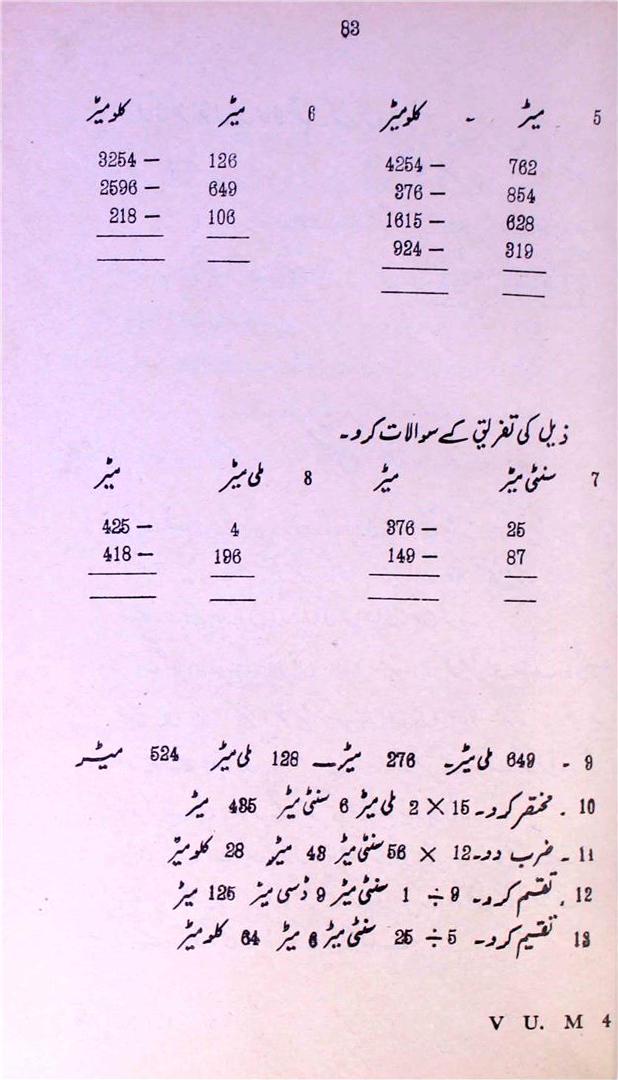 83
5 میٹر - کلومیٹر 6 میٹر کلومیٹر
762 4254 — 126 3254 —
854 376 — 649 2596 —
628 1615 — 106 218 —
319 924 —
ذیل کی تفریق کے سوالات کرو۔
7 سنٹی میٹر میٹر 8 ملی میٹر میٹر
25 376 — 4 425 —
87 149 — 196 418 —
9 - 649 ملی میٹر۔ 276 میٹر — 128 ملی میٹر 524 میٹر
10 . مختصر کرو۔ 15 × 2 ملی میٹر 6 سنٹی میٹر 435 میٹر
11 ۔ ضرب دو۔ 12 × 56 سنٹی میٹر 43 میٹر 28 کلومیٹر
12 . تقسیم کرو۔ 9 ÷ 1 سنٹی میٹر 9 ڈسی میٹر 125 میٹر
13 تقسیم کرو۔ 5 ÷ 25 سنٹی میٹر 6 میٹر 64 کلو میٹر
V U. M 4